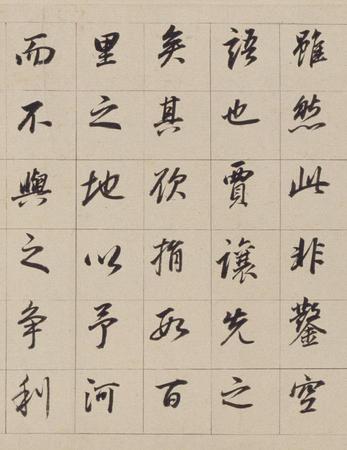 雖然此非鑿空
語也賈讓先之
矣其欲捐數百
里之地以予河
而不與之争利